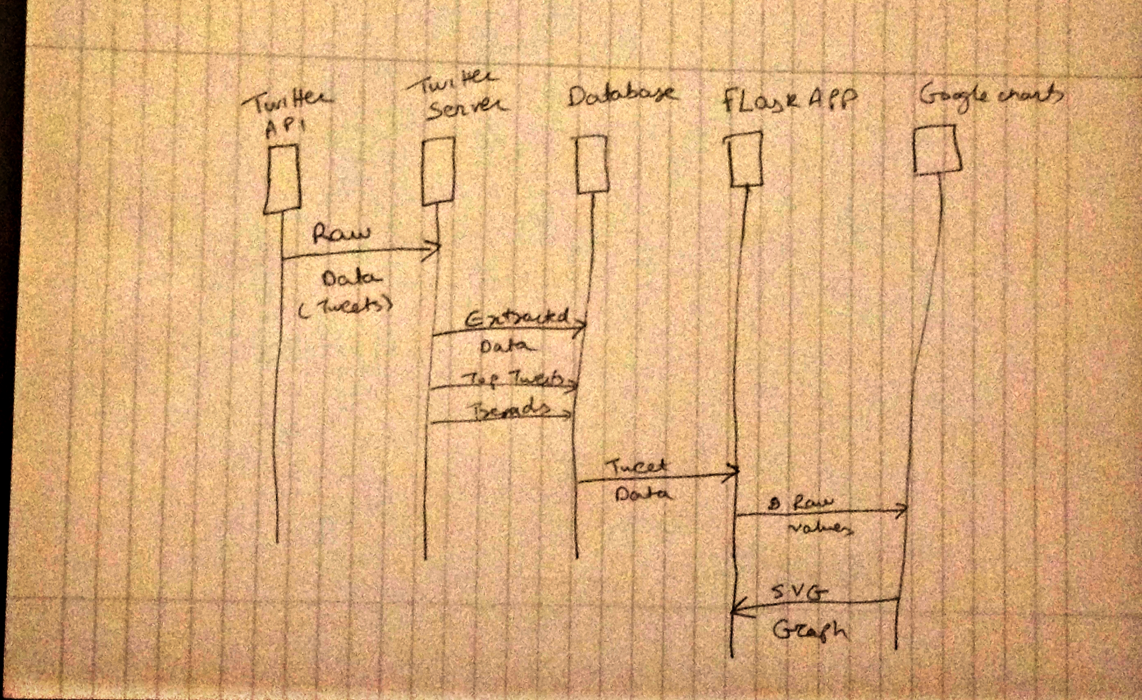 Twitter
API
Twitter
Server
Database
FLask APP
Google charts
Raw
Data
(Tweets)
Extracted
Data
Top Tweets
Trends
Tweet
Data
Raw
values
SVG
Graph